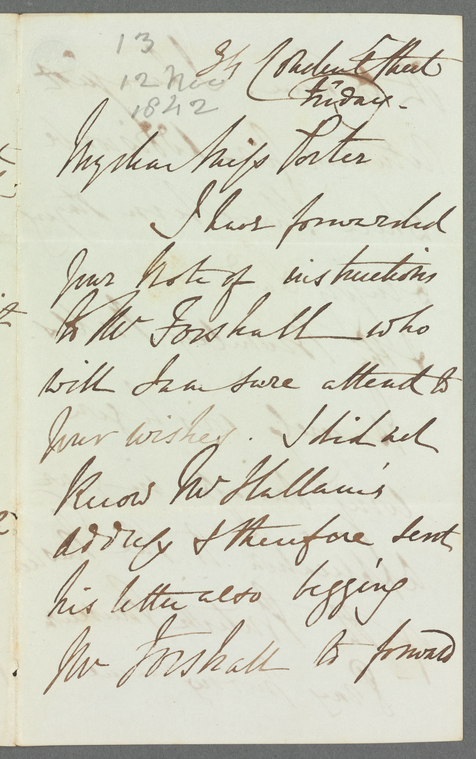 13
12 Nov
1842
Conduit Street
Friday.
My dear Miss Porter
I have forwarded
your Note of instructions
to Mr Forshall who
will I am sure attend to
your wishes. I did not
know Mr Hallam's
address & therefore sent
his letter also begging
Mr Forshall to forward